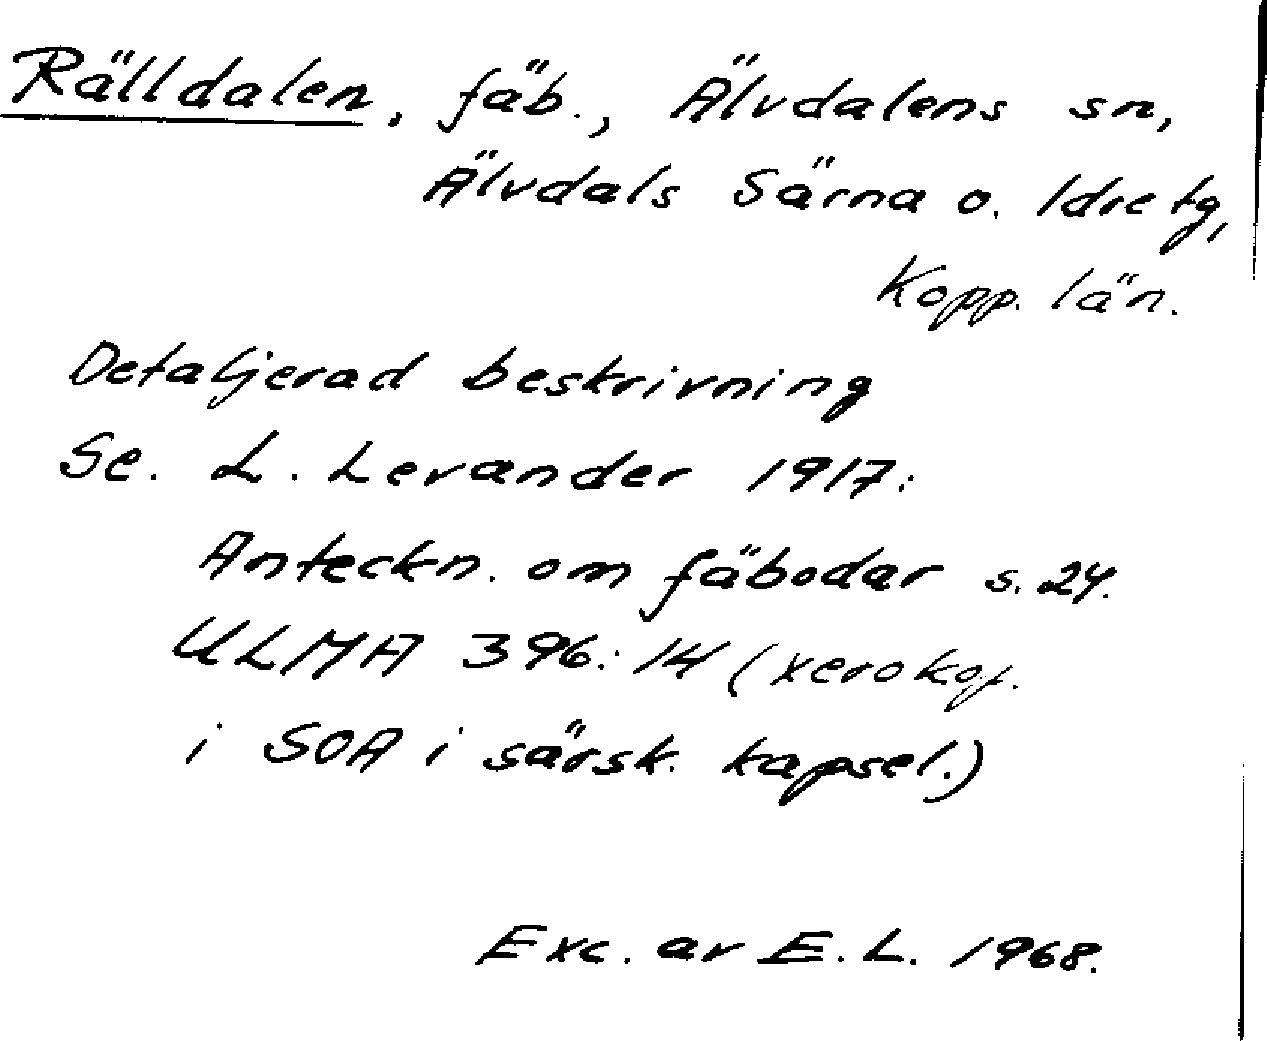 Rälldalen, fäb., Älvdalens sn,
Älvdals Särna o. Idre tg,
Kopp. län.
Detaljerad beskrivning
Se. L. Levander 1917:
Anteckn. om fäbodar s. 24.
ULMA 396:14 (xerokop.
i SOA i särsk. kapsel.)
Exc. av E. L. 1968.